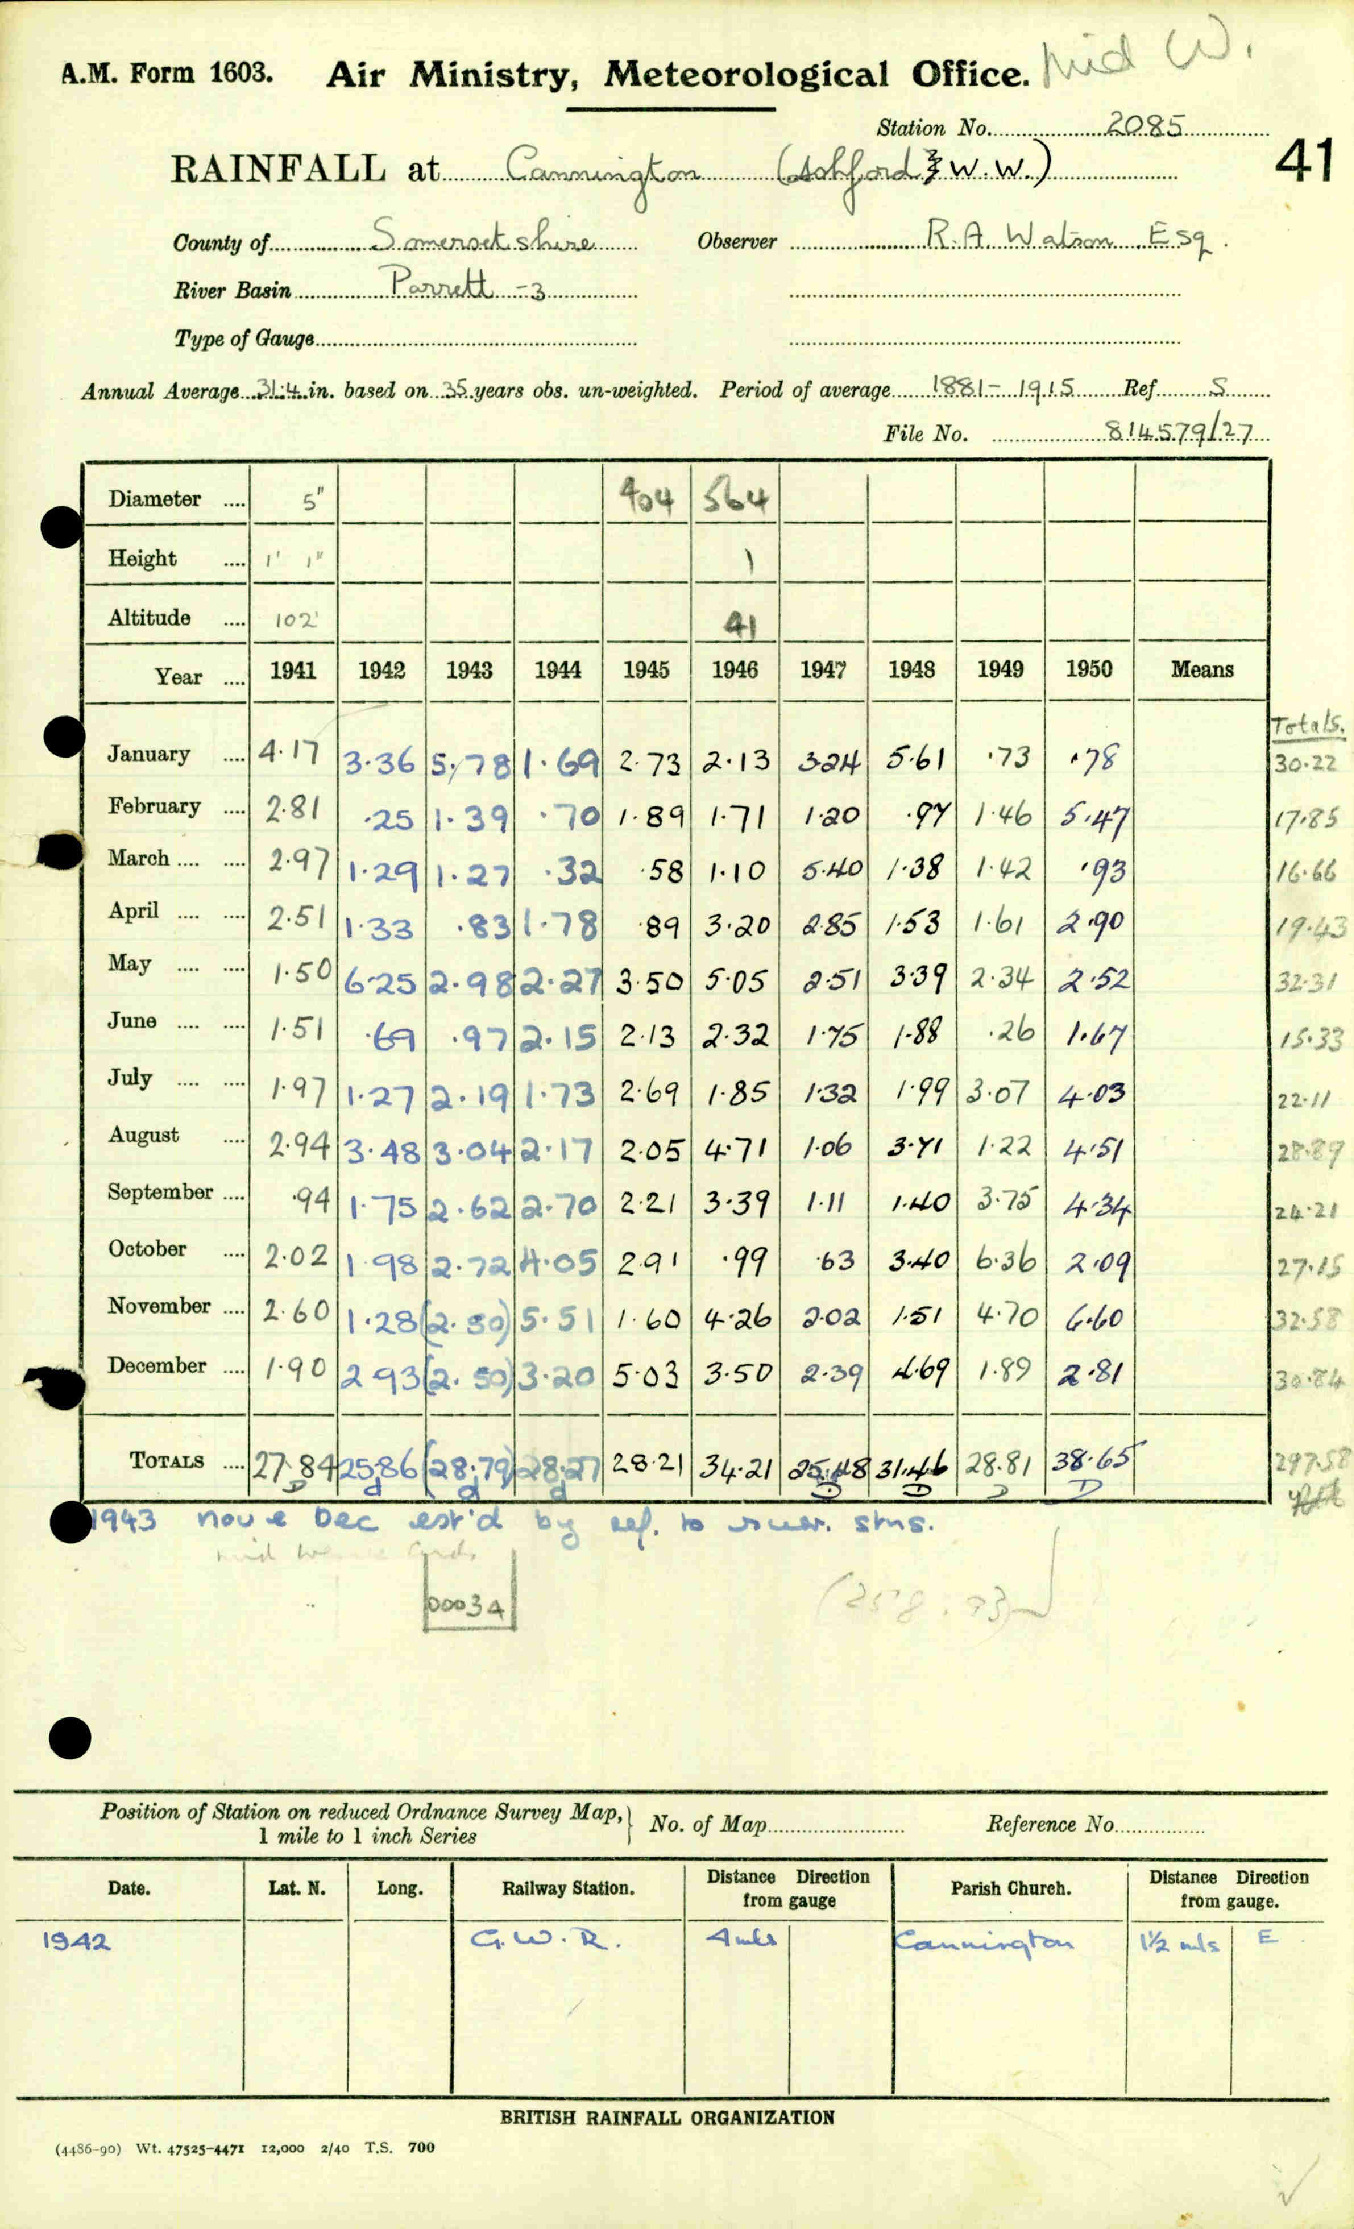 Mid W.
A.M. Form 1603. Air Ministry, Meteorological Office.
Station No. 2085
41
RAINFALL at Cannington (Ashford & W.W.)
County of Somersetshire Observer R.A. Watson Esq.
River Basin Parrett -3
Type of Gauge
Annual Average 31.4 in. based on 35 years obs. un-weighted. Period of average 1881-1915 Ref S
File No. 814579/27
Diameter .... 5" 404 564
Height .... 1' 1" 1
Altitude .... 102' 41
Year .... 1941 1942 1943 1944 1945 1946 1947 1948 1949 1950 Means
Totals.
January .... 4.17 3.36 5.78 1.69 2.73 2.13 3.24 5.61 .73 .78 30.22
February .... 2.81 .25 1.39 .70 1.89 1.71 1.20 .97 1.46 5.47 17.85
March .... .... 2.97 1.29 1.27 .32 .58 1.10 5.40 1.38 1.42 .93 16.66
April .... .... 2.51 1.33 .83 1.78 .89 3.20 2.85 1.53 1.61 2.90 19.43
May .... .... 1.50 6.25 2.98 2.27 3.50 5.05 2.51 3.39 2.34 2.52 32.31
June .... .... 1.51 .69 .97 2.15 2.13 2.32 1.75 1.88 .26 1.67 15.33
July .... .... 1.97 1.27 2.19 1.73 2.69 1.85 1.32 1.99 3.07 4.03 22.11
August .... 2.94 3.48 3.04 2.17 2.05 4.71 1.06 3.71 1.22 4.51 28.89
September .... .94 1.75 2.62 2.70 2.21 3.39 1.11 1.40 3.75 4.34 24.21
October .... 2.02 1.98 2.72 4.05 2.91 .99 .63 3.40 6.36 2.09 27.15
November .... 2.60 1.28 (2.50) 5.51 1.60 4.26 2.02 1.51 4.70 6.60 32.58
December .... 1.90 2.93 (2.50) 3.20 5.03 3.50 2.39 4.69 1.89 2.81 30.84
TOTALS .... 27.84 25.86 (28.79) 28.27 28.21 34.21 25.48 31.46 28.81 38.65 297.58
D d d d D D D D
1943 nov & Dec est'd by ref. to surr. stns.
00034
Position of Station on reduced Ordnance Survey Map, 1 mile to 1 inch Series } No. of Map Reference No.
Date. Lat. N. Long. Railway Station. Distance Direction from gauge Parish Church. Distance Direction from gauge.
1942 G.W.R. 4 mls Cannington 1½ mls E
BRITISH RAINFALL ORGANIZATION
(4486-90) Wt. 47525-4471 12,000 2/40 T.S. 700